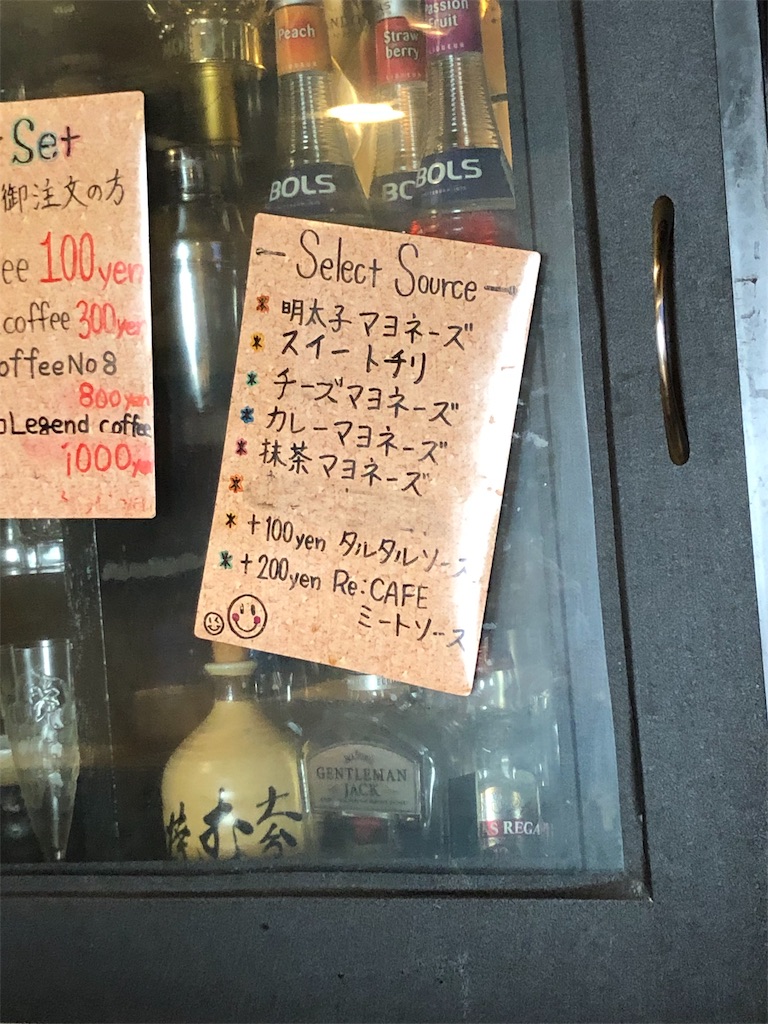 Peach
Straw
berry
Passion
fruit
BOLS
BOLS
Set
御注文の方
100yen
coffee 300yen
offee No 8
800yen
Legend coffee
1000yen
Select Source
明太子マヨネーズ
スイートチリ
チーズマヨネーズ
カレーマヨネーズ
抹茶マヨネーズ
+100yen タルタルソース
+200yen Re:CAFE
ミートソース
GENTLEMAN
JACK
AS REGA